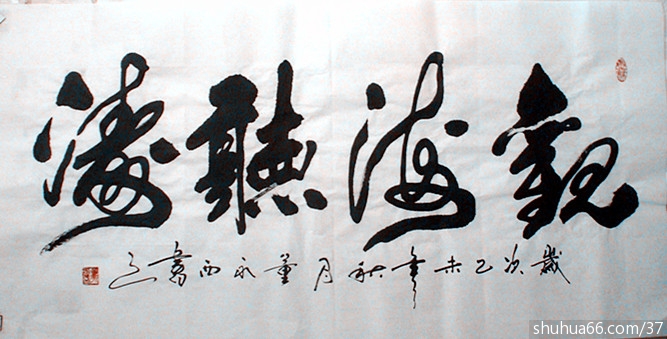 觀海聽濤
歲次乙未年秋月董永西書
shuhua66.com/37